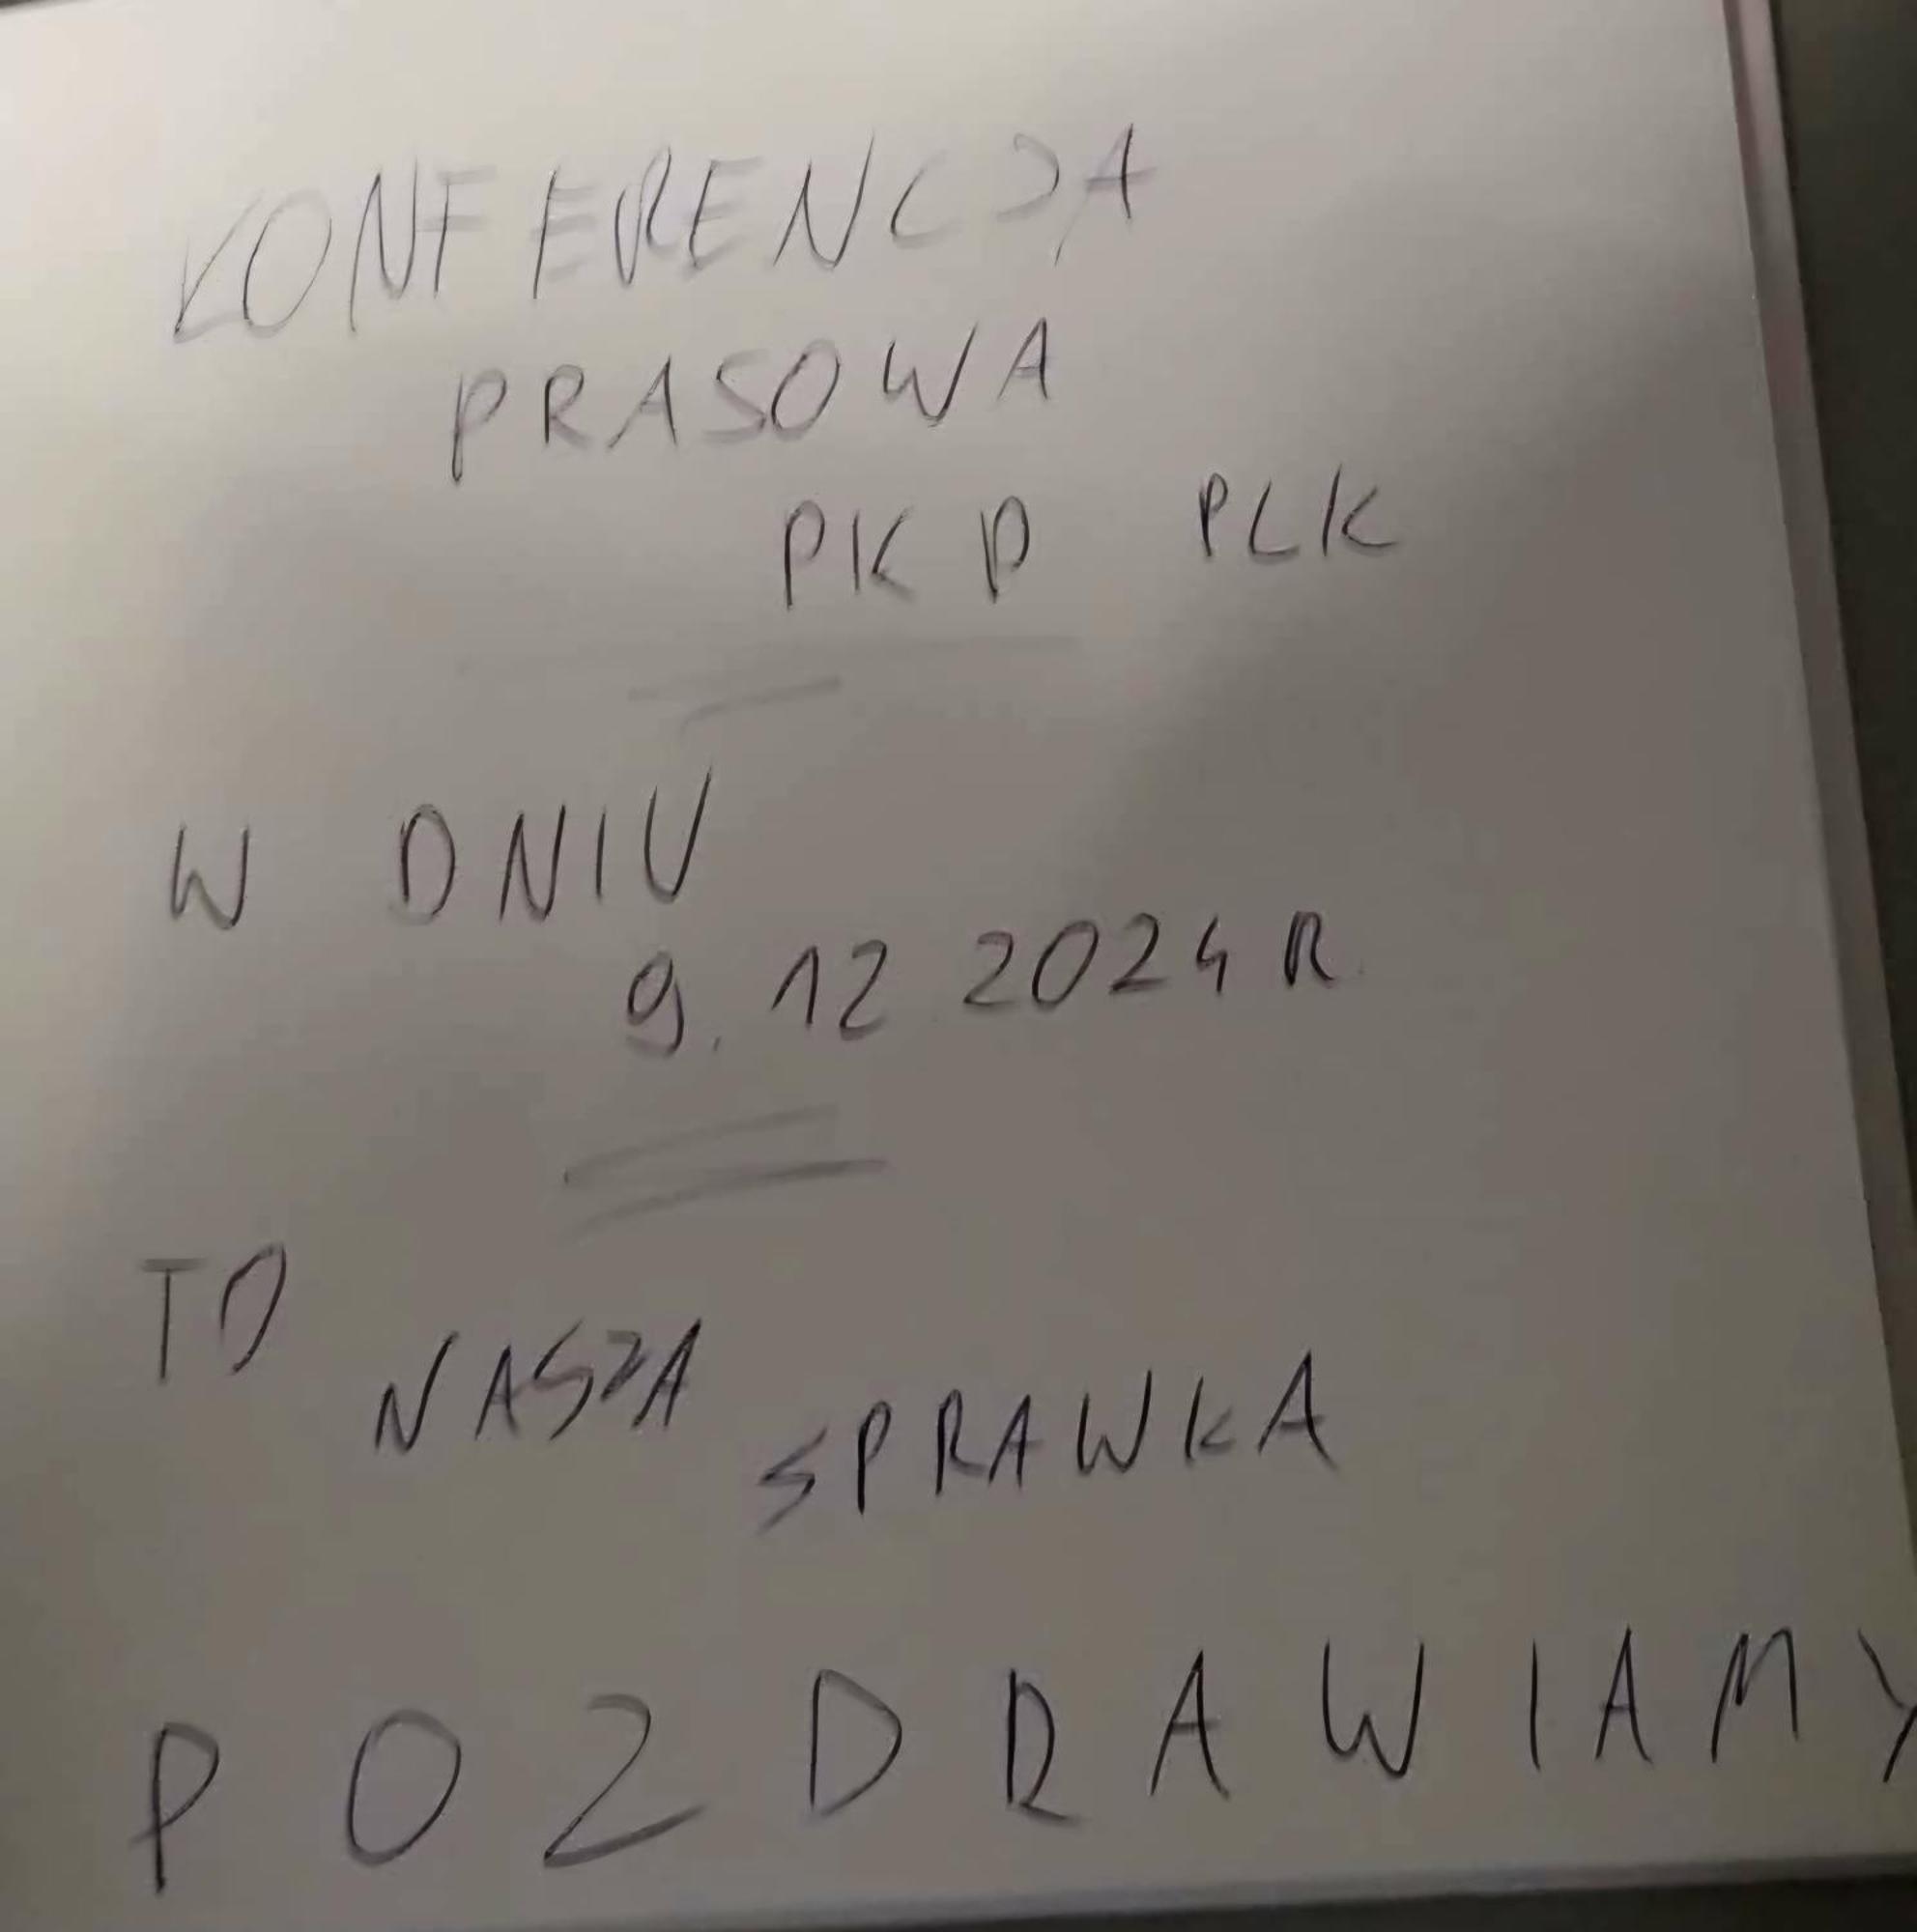 KONFERENCJA
PRASOWA
PKP PLK
W DNIU
9.12 2024 R.
TO
NASZA
SPRAWKA
POZDRAWIAMY